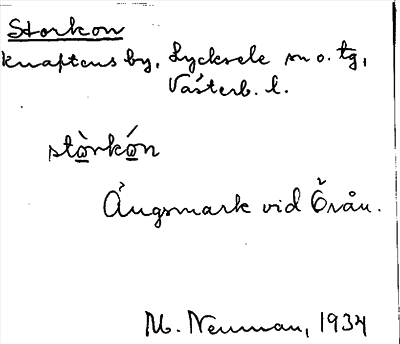 Storkon
Knaftens by, Lycksele sn o. tg,
Västerb. l.
stòrkón
Ängsmark vid Örån.
M. Neuman, 1934